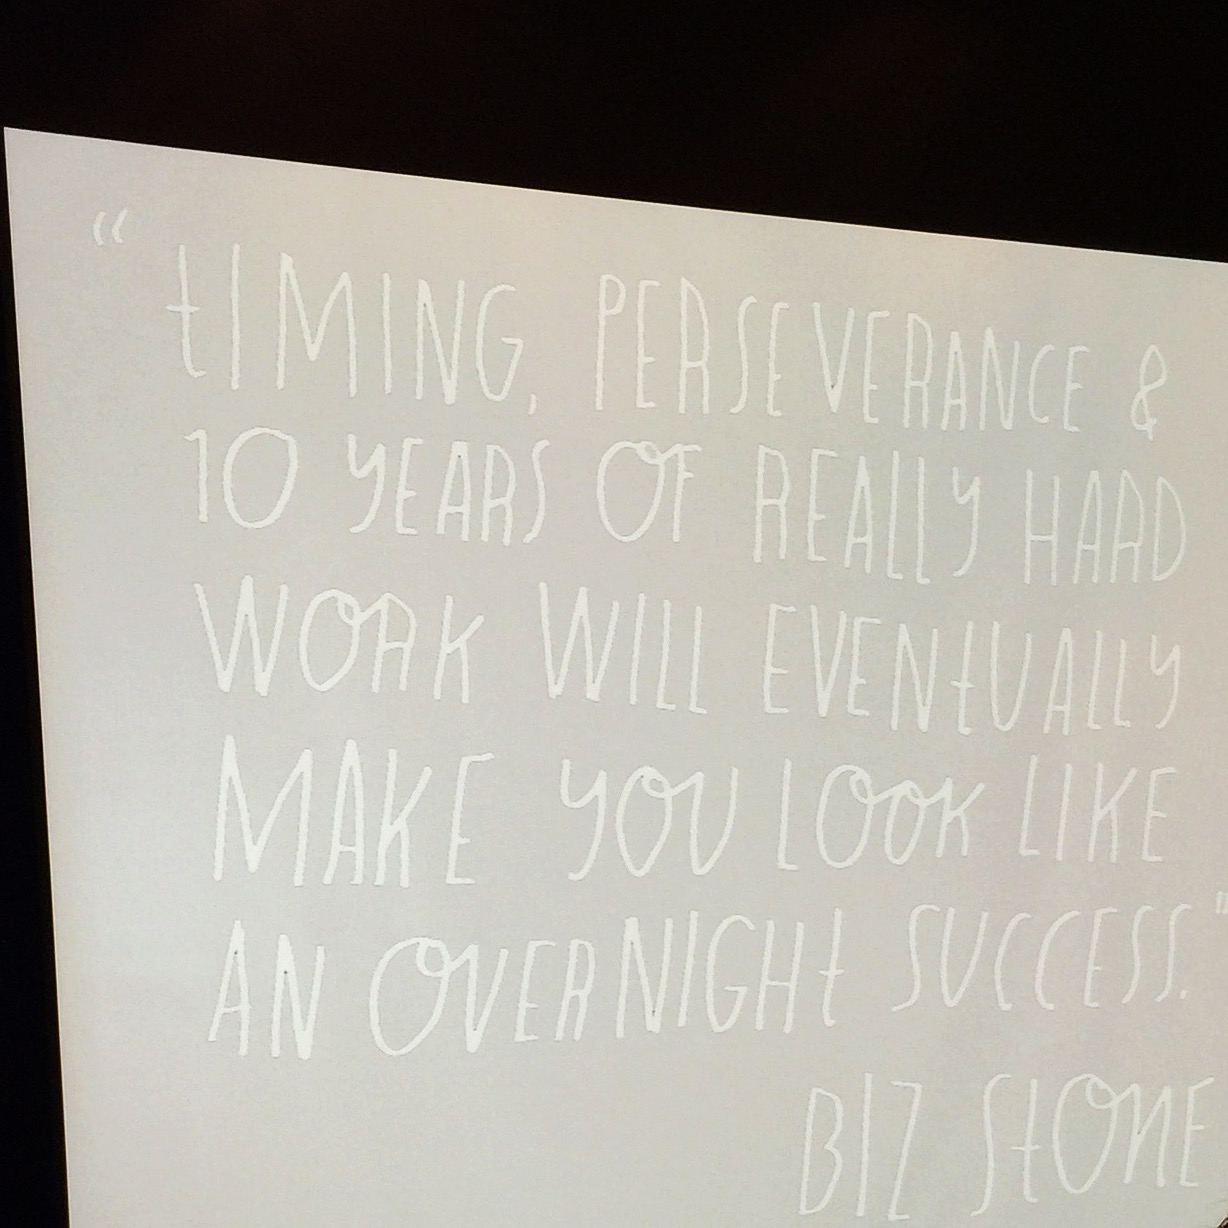 “ tIMING, PERSEVERANCE &
10 YEARS OF REALLY HARD
WORK WILL EVENtUALLY
MAKE YOU LOOK LIKE
AN OVERNIGHt SUCCESS.”
BIZ StONE